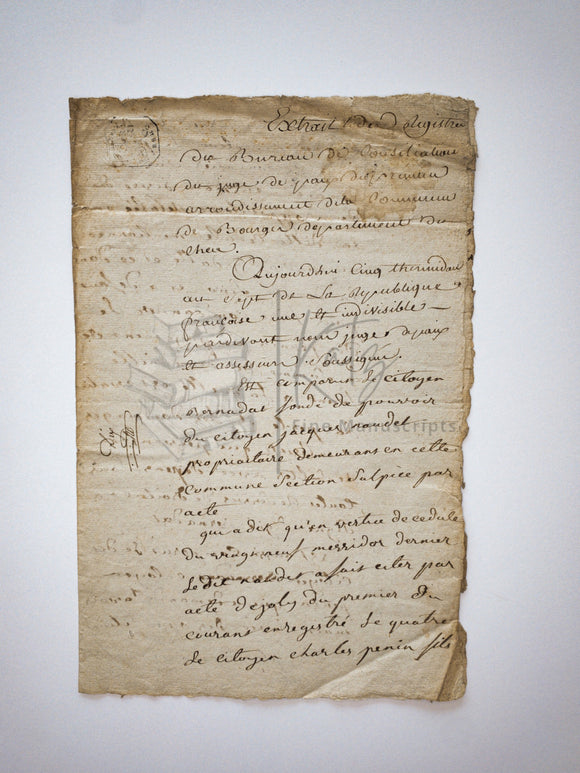 Extrait des Registre
du Bureau de Consiliation
du juge de paix du premier
arrondissement de la Commune
de Bourges departement du
cher.
Aujourdhui Cinq thermidor
an Sept de La Republique
françoise une et indivisible
pardevant nous juge de paix
et assesseurs Soussignés.
Est comparu le citoyen
Bernadat fondé de pouvoir
du citoyen jacques
propriaitaire demeurans en cette
Commune Section Sulpice par
acte
qui a dit qu'en vertue de cedule
du vingt neuf messidor dernier
le dit a fait citer par
acte dejoly du premier du
courans enregistré le quatre
le citoyen charles penin fils
Fine Manuscripts